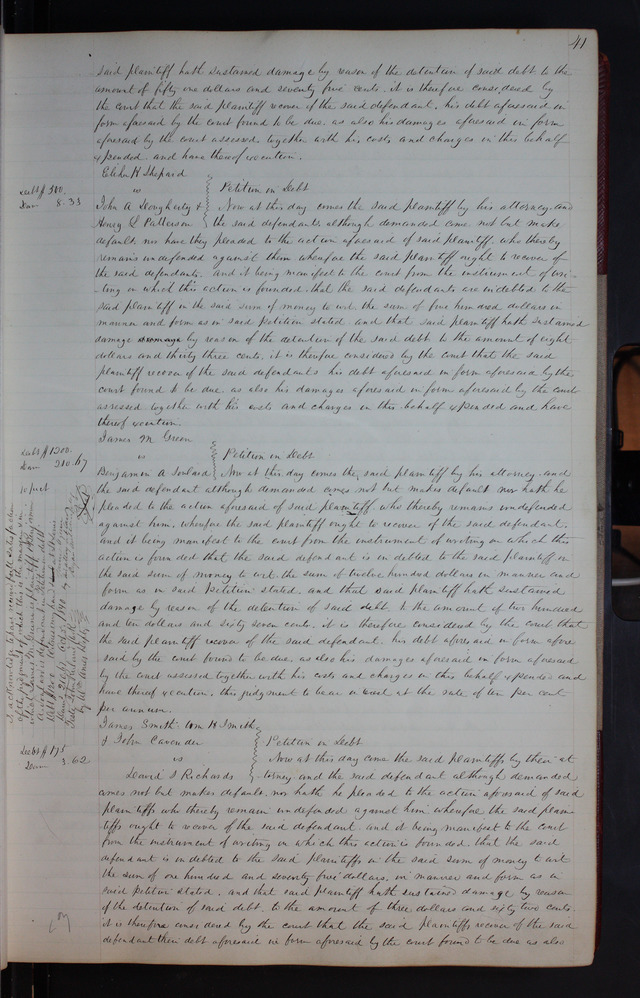 41
said plaintiff hath sustained damage by reason of the detention of said debt to the
amount of fifty one dollars and seventy five cents. it is therefore considered by
the court that the said plaintiff recover of the said defendant, his debt aforesaid in
form aforesaid by the court found to be due. as also his damages aforesaid in form
aforesaid by the court assessed together with his costs and charges in this behalf
expended and have thereof execution.
Elihu H Shepard
vs Petition in Debt
Debt $ 500.
Dam 8.33
John A Dougherty & Now at this day comes the said plaintiff by his attorney. and
Henry L Patterson the said defendants, although demanded come not but make
default, nor have they pleaded to the action aforesaid of said plaintiff who thereby
remains undefended against them wherefore the said plaintiff ought to recover of
the said defendants. and it being manifest to the court from the instrument of wri-
-ting on which this action is founded that the said defendants are indebted to the
said plaintiff in the said sum of money to wit the sum of five hundred dollars in
manner and form as in said Petition stated and that said plaintiff hath sustained
damage by reason of the detention of the said debt to the amount of eight
dollars and thirty three cents, it is therefore considered by the court that the said
plaintiff recover of the said defendants his debt aforesaid in form aforesaid by the
court found to be due as also his damages aforesaid in form aforesaid by the court
assessed together with his costs and charges in this behalf expended and have
thereof execution.
James M Green
vs Petition in Debt
Debt $ 1200.
Dam 210.67
10 pr ct
Benjamin A Soulard Now at this day comes the said plaintiff by his attorney and
the said defendant although demanded comes not but makes default nor hath he
pleaded to the action aforesaid of said plaintiff who thereby remains undefended
against him, wherefore the said plaintiff ought to recover of the said defendant.
and it being manifest to the court from the instrument of writing on which this
action is founded that the said defendant is indebted to the said plaintiff in
the said sum of money to wit the sum of twelve hundred dollars in manner and
form as in said Petition stated. and that said plaintiff hath sustained
damage by reason of the detention of said debt to the amount of two hundred
and ten dollars and sixty seven cents. it is therefore considered by the court that
the said plaintiff recover of the said defendant. his debt aforesaid in form afore
said by the court found to be due, as also his damages aforesaid in form aforesaid
by the court assessed together with his costs and charges in this behalf expended and
have thereof execution, this judgment to bear interest at the rate of ten per cent
per annum.
James Smith Wm H Smith
& John Cavender Petition in Debt
Debt $ 175
Dam 3.62
vs Now at this day come the said plaintiffs by their at
David I Richards torney and the said defendant although demanded
comes not but makes default, nor hath he pleaded to the action aforesaid of said
plaintiffs who thereby remain undefended against him wherefore the said plain-
tiffs ought to recover of the said defendant. and it being manifest to the court
from the instrument of writing on which this action is founded that the said
defendant is indebted to the said plaintiffs in the said sum of money to wit
the sum of one hundred and seventy five dollars, in manner and form as in
said petition stated, and that said plaintiff hath sustained damage by reason
of the detention of said debt. to the amount of three dollars and sixty two cents
it is therefore considered by the court that the said plaintiffs recover of the said
defendant their debt aforesaid in form aforesaid by the court found to be due as also